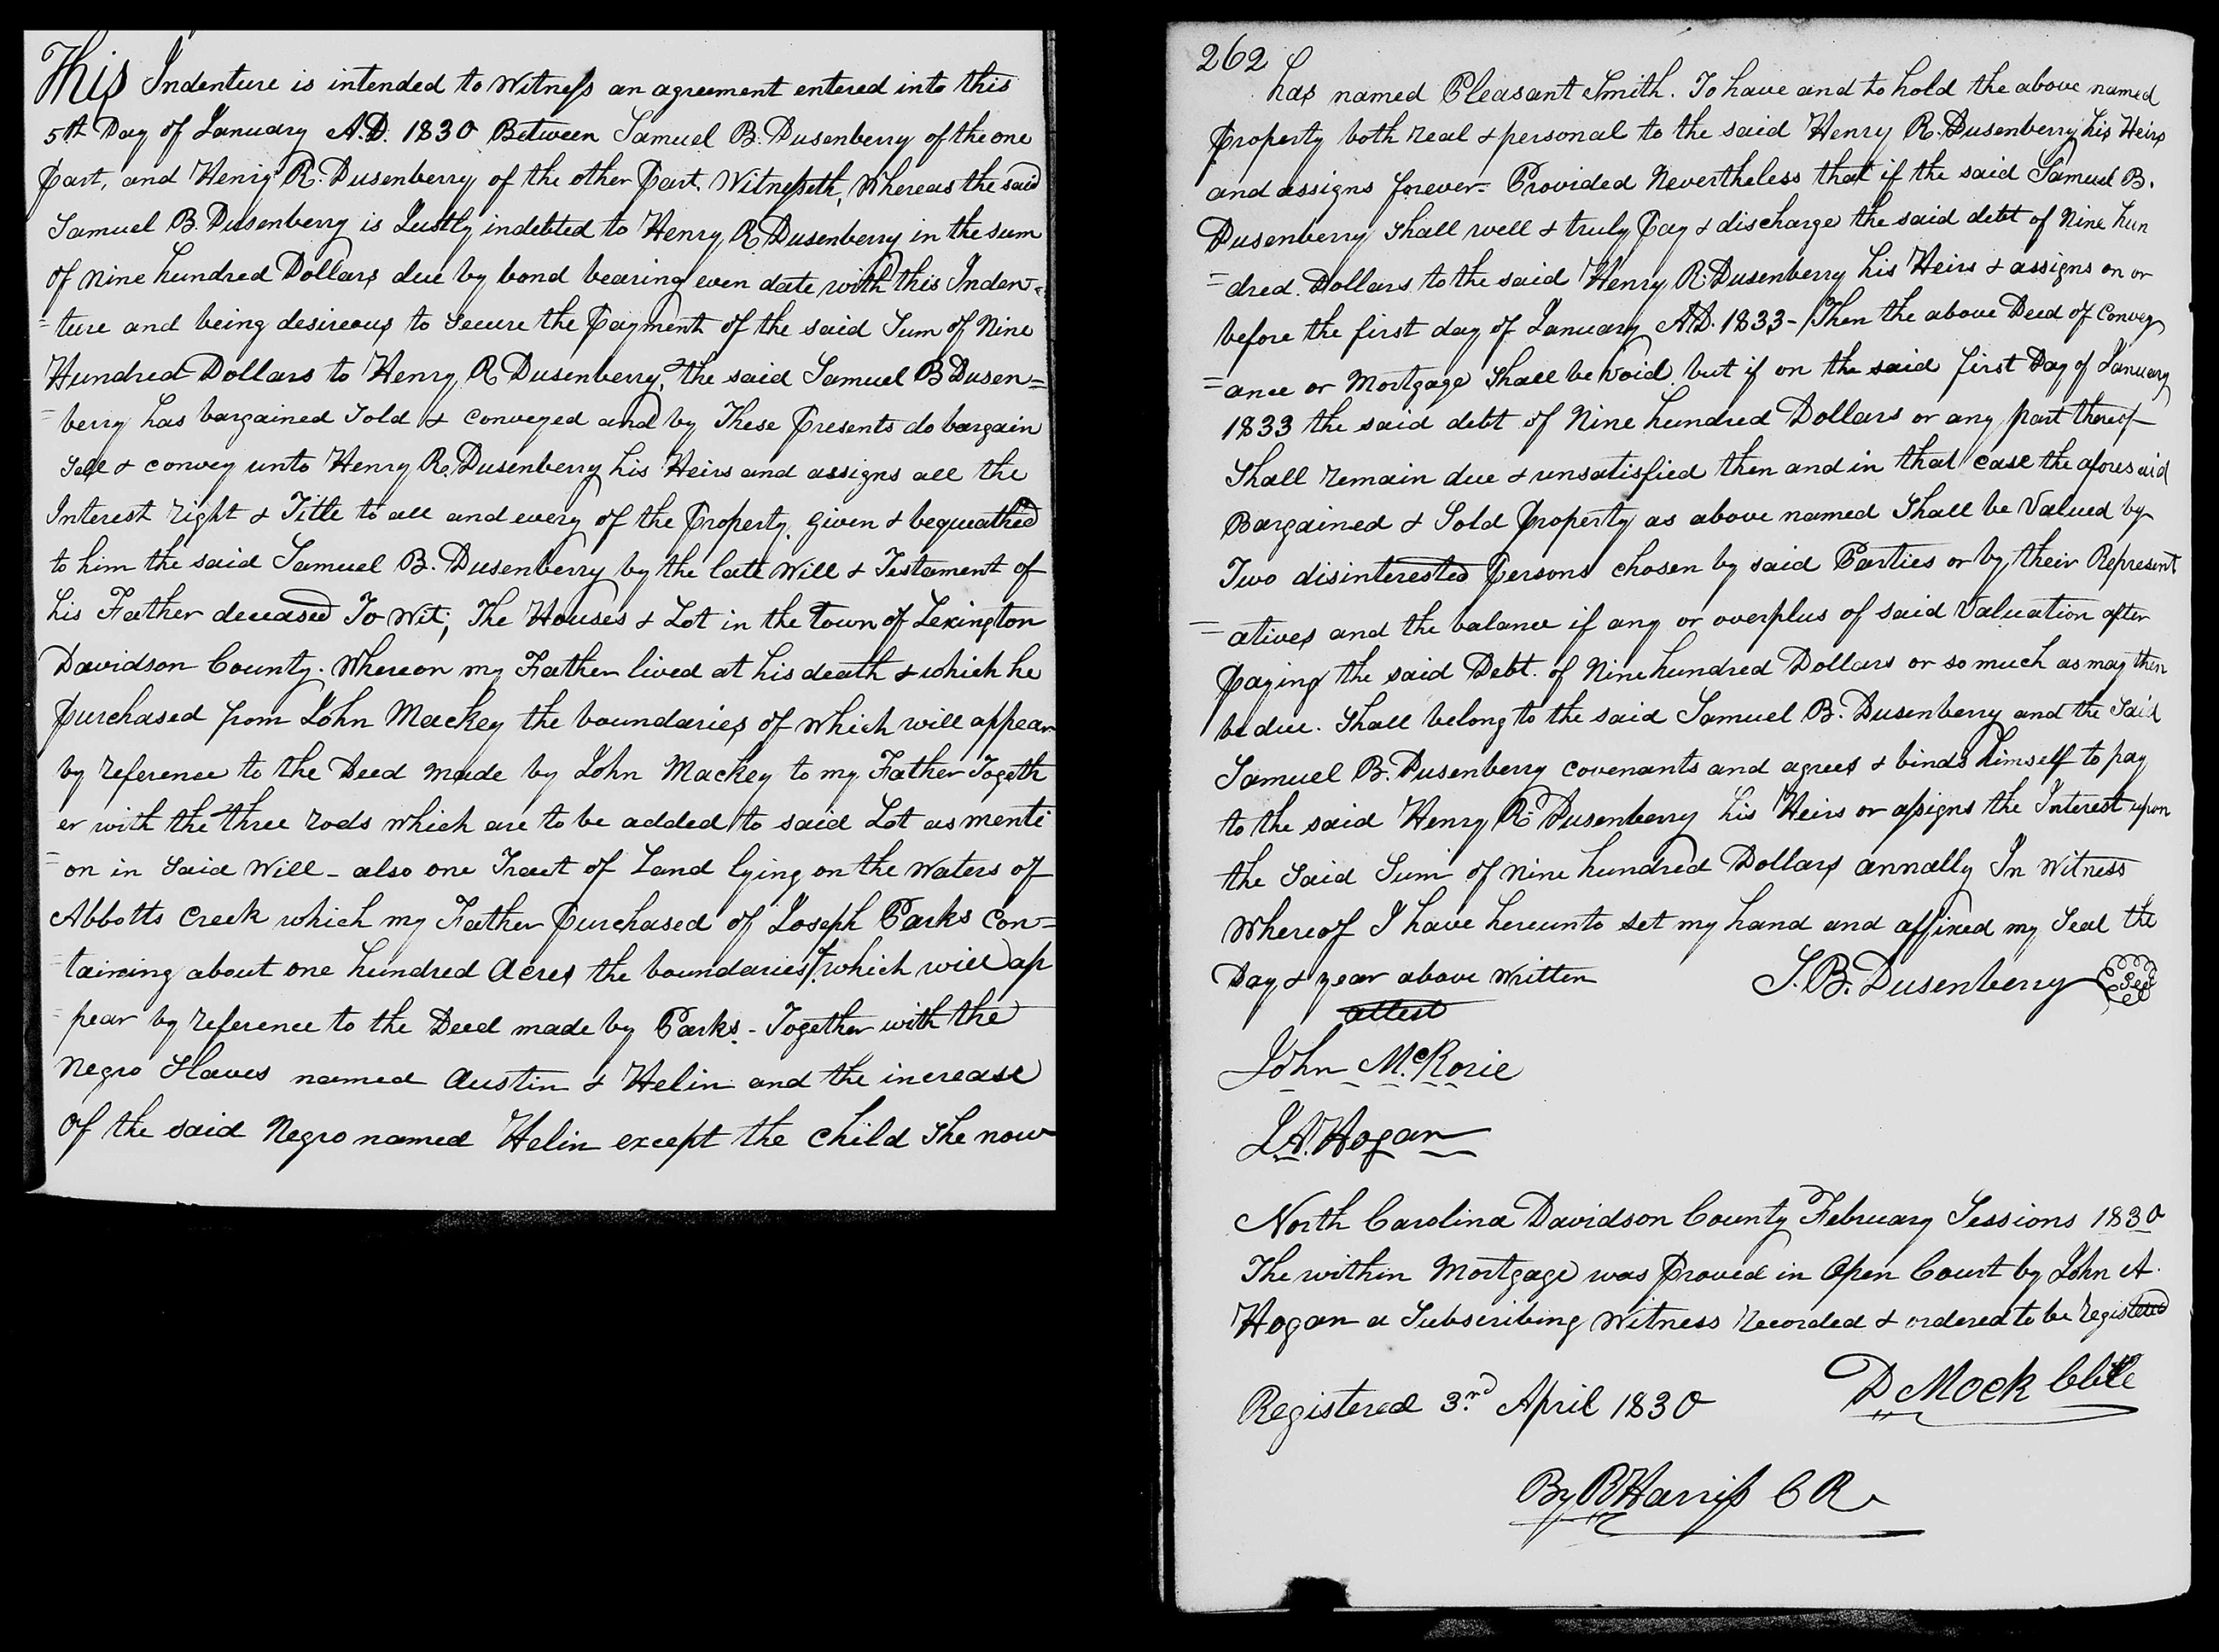 This Indenture is intended to Witness an agreement entered into this
5th Day of January A.D. 1830 Between Samuel B. Dusenberry of the one
Part, and Henry R. Dusenberry of the other Part, Witnesseth, Whereas the said
Samuel B. Dusenberry is Justly indebted to Henry R Dusenberry in the sum
of Nine hundred Dollars due by bond bearing even date with this Inden=
=ture and being desireous to Secure the Payment of the said Sum of Nine
Hundred Dollars to Henry R Dusenberry, the said Samuel B Dusen=
=berry has bargained Sold & conveyed and by These Presents do bargain
Sell & convey unto Henry R. Dusenberry his Heirs and assigns all the
Interest right & Title to all and every of the Property, given & bequeathed
to him the said Samuel B. Dusenberry by the late Will & Testament of
his Father deceased To Wit; The Houses & Lot in the town of Lexington
Davidson County. Whereon my Father lived at his death & which he
Purchased from John Mackey the boundaries of which will appear
by reference to the Deed made by John Mackey to my Father Togeth
er with the three rods which are to be added to said Lot as menti
=on in Said Will - also one Tract of Land lying on the Waters of
Abbotts Creek which my Father Purchased of Joseph Parks Con=
=taining about one hundred Acres the boundaries of which will ap
=pear by reference to the Deed made by Parks - Together with the
Negro Slaves named Austin & Helin and the increase
Of the said Negro named Helin except the child She now
262
has named Pleasant Smith. To have and to hold the above named
Property both real & personal to the said Henry R. Dusenberry his Heirs
and assigns forever = Provided Nevertheless that if the said Samuel B.
Dusenberry Shall well & truly Pay & discharge the said debt of Nine hun
=dred. Dollars to the said Henry R. Dusenberry his Heirs & assigns on or
before the first day of January A.D. 1833 - Then the above Deed of Convey
=ance or Mortgage Shall be void. but if on the said first Day of January
1833 the said debt of Nine hundred Dollars or any part thereof
Shall remain due & unsatisfied then and in that case the aforesaid
Bargained & Sold Property as above named Shall be Valued by
Two disinterested Persons chosen by said Parties or by their Represent
=atives and the balance if any or overplus of said Valuation after
Paying the said Debt. of Nine hundred Dollars or so much as may then
be due. Shall belong to the said Samuel B. Dusenberry and the Said
Samuel B. Dusenberry covenants and agrees & binds himself to pay
to the said Henry R. Dusenberry his Heirs or assigns the Interest upon
the Said Sum of Nine hundred Dollars annally In Witness
Whereof I have hereunto set my hand and affixed my Seal the
Day & year above Written S. B. Dusenberry Seal
attest
John McRorie
J. A. Hogan
North Carolina Davidson County February Sessions 1830
The within Mortgage was Proved in Open Court by John A.
Hogan a Subscribing Witness Recorded & ordered to be registered
D Mock Clk
Registered 3rd April 1830
By B Harriss C R